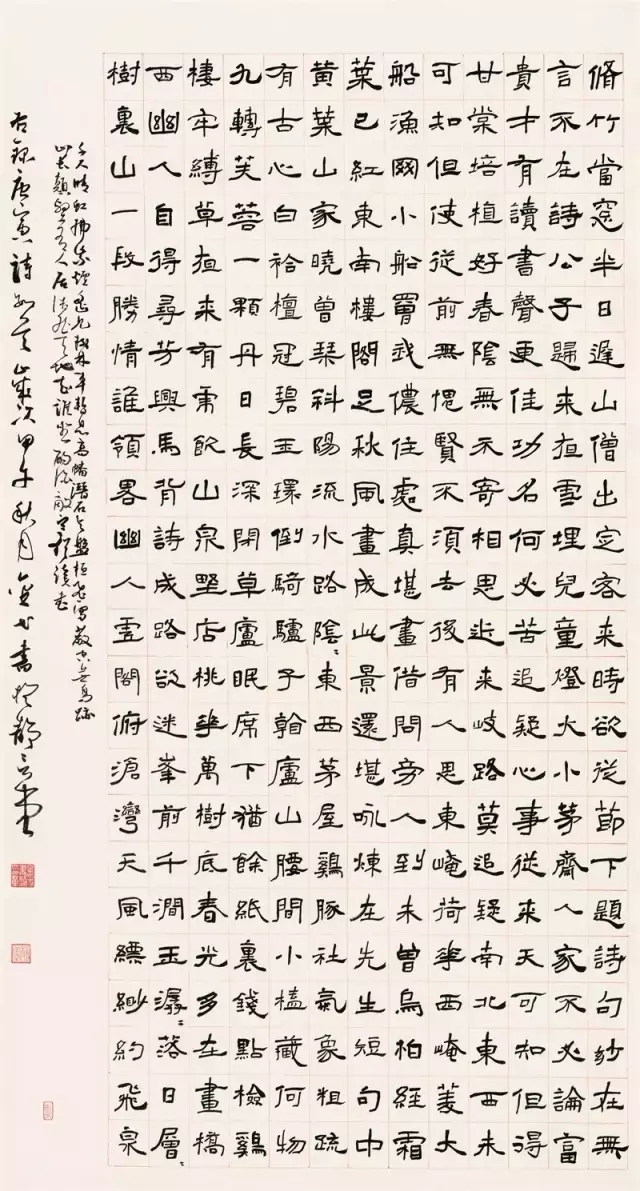 脩竹當窓半日遲山僧出定客来時欲從節下題詩句玅在無
言不在詩公子歸来夜雪埋兒童燈火小茅齋人家不必論富
貴才有讀書聲更佳功名何必苦追疑心事從来天可知但得
甘棠培植好春陰無不寄相思近来岐路莫追疑南北東西未
可知但使從前無愧賢不須去後有人思東崦荷華西崦菱大
船漁網小船罾武儂住處真堪畫借問旁人到未曽烏柏經霜
葉已紅東南樓閣足秋風畫成此景還堪咏煉在先生短句中
黄葉山家曉曽琹科陽流水路隂〻東西茅屋鷄豚社氣象粗疏
有古心白袷檀冠碧玉環倒騎驢子斡廬山腰間小榼藏何物
九轉芙蓉一顆丹日長深閉草廬眠席下猶餘紙裏錢點檢鷄
棲牢縛草夜来有帚飲山泉野店桃華萬樹底春光多在畫橋
西幽人自得尋芳興馬背詩成路欲迷峯前千澗玉潺〻落日層
樹裏山一段勝情誰領畧幽人雲閣俯滄灣天風縹緲約飛泉
右錄唐寅詩 歲次甲午秋月 書於靜